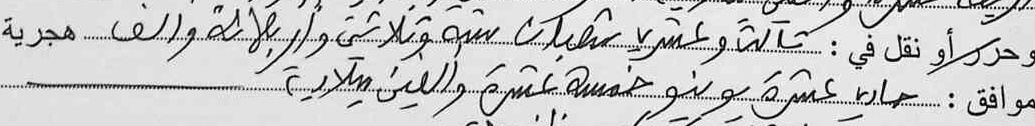 وحرر أو نقل في : ثالث وعشرين شعبان ستة وثلاثين وأربعمائة وألف هجرية
موافق : حادي عشرة يونيو خمسة عشرة وألفين ميلادية